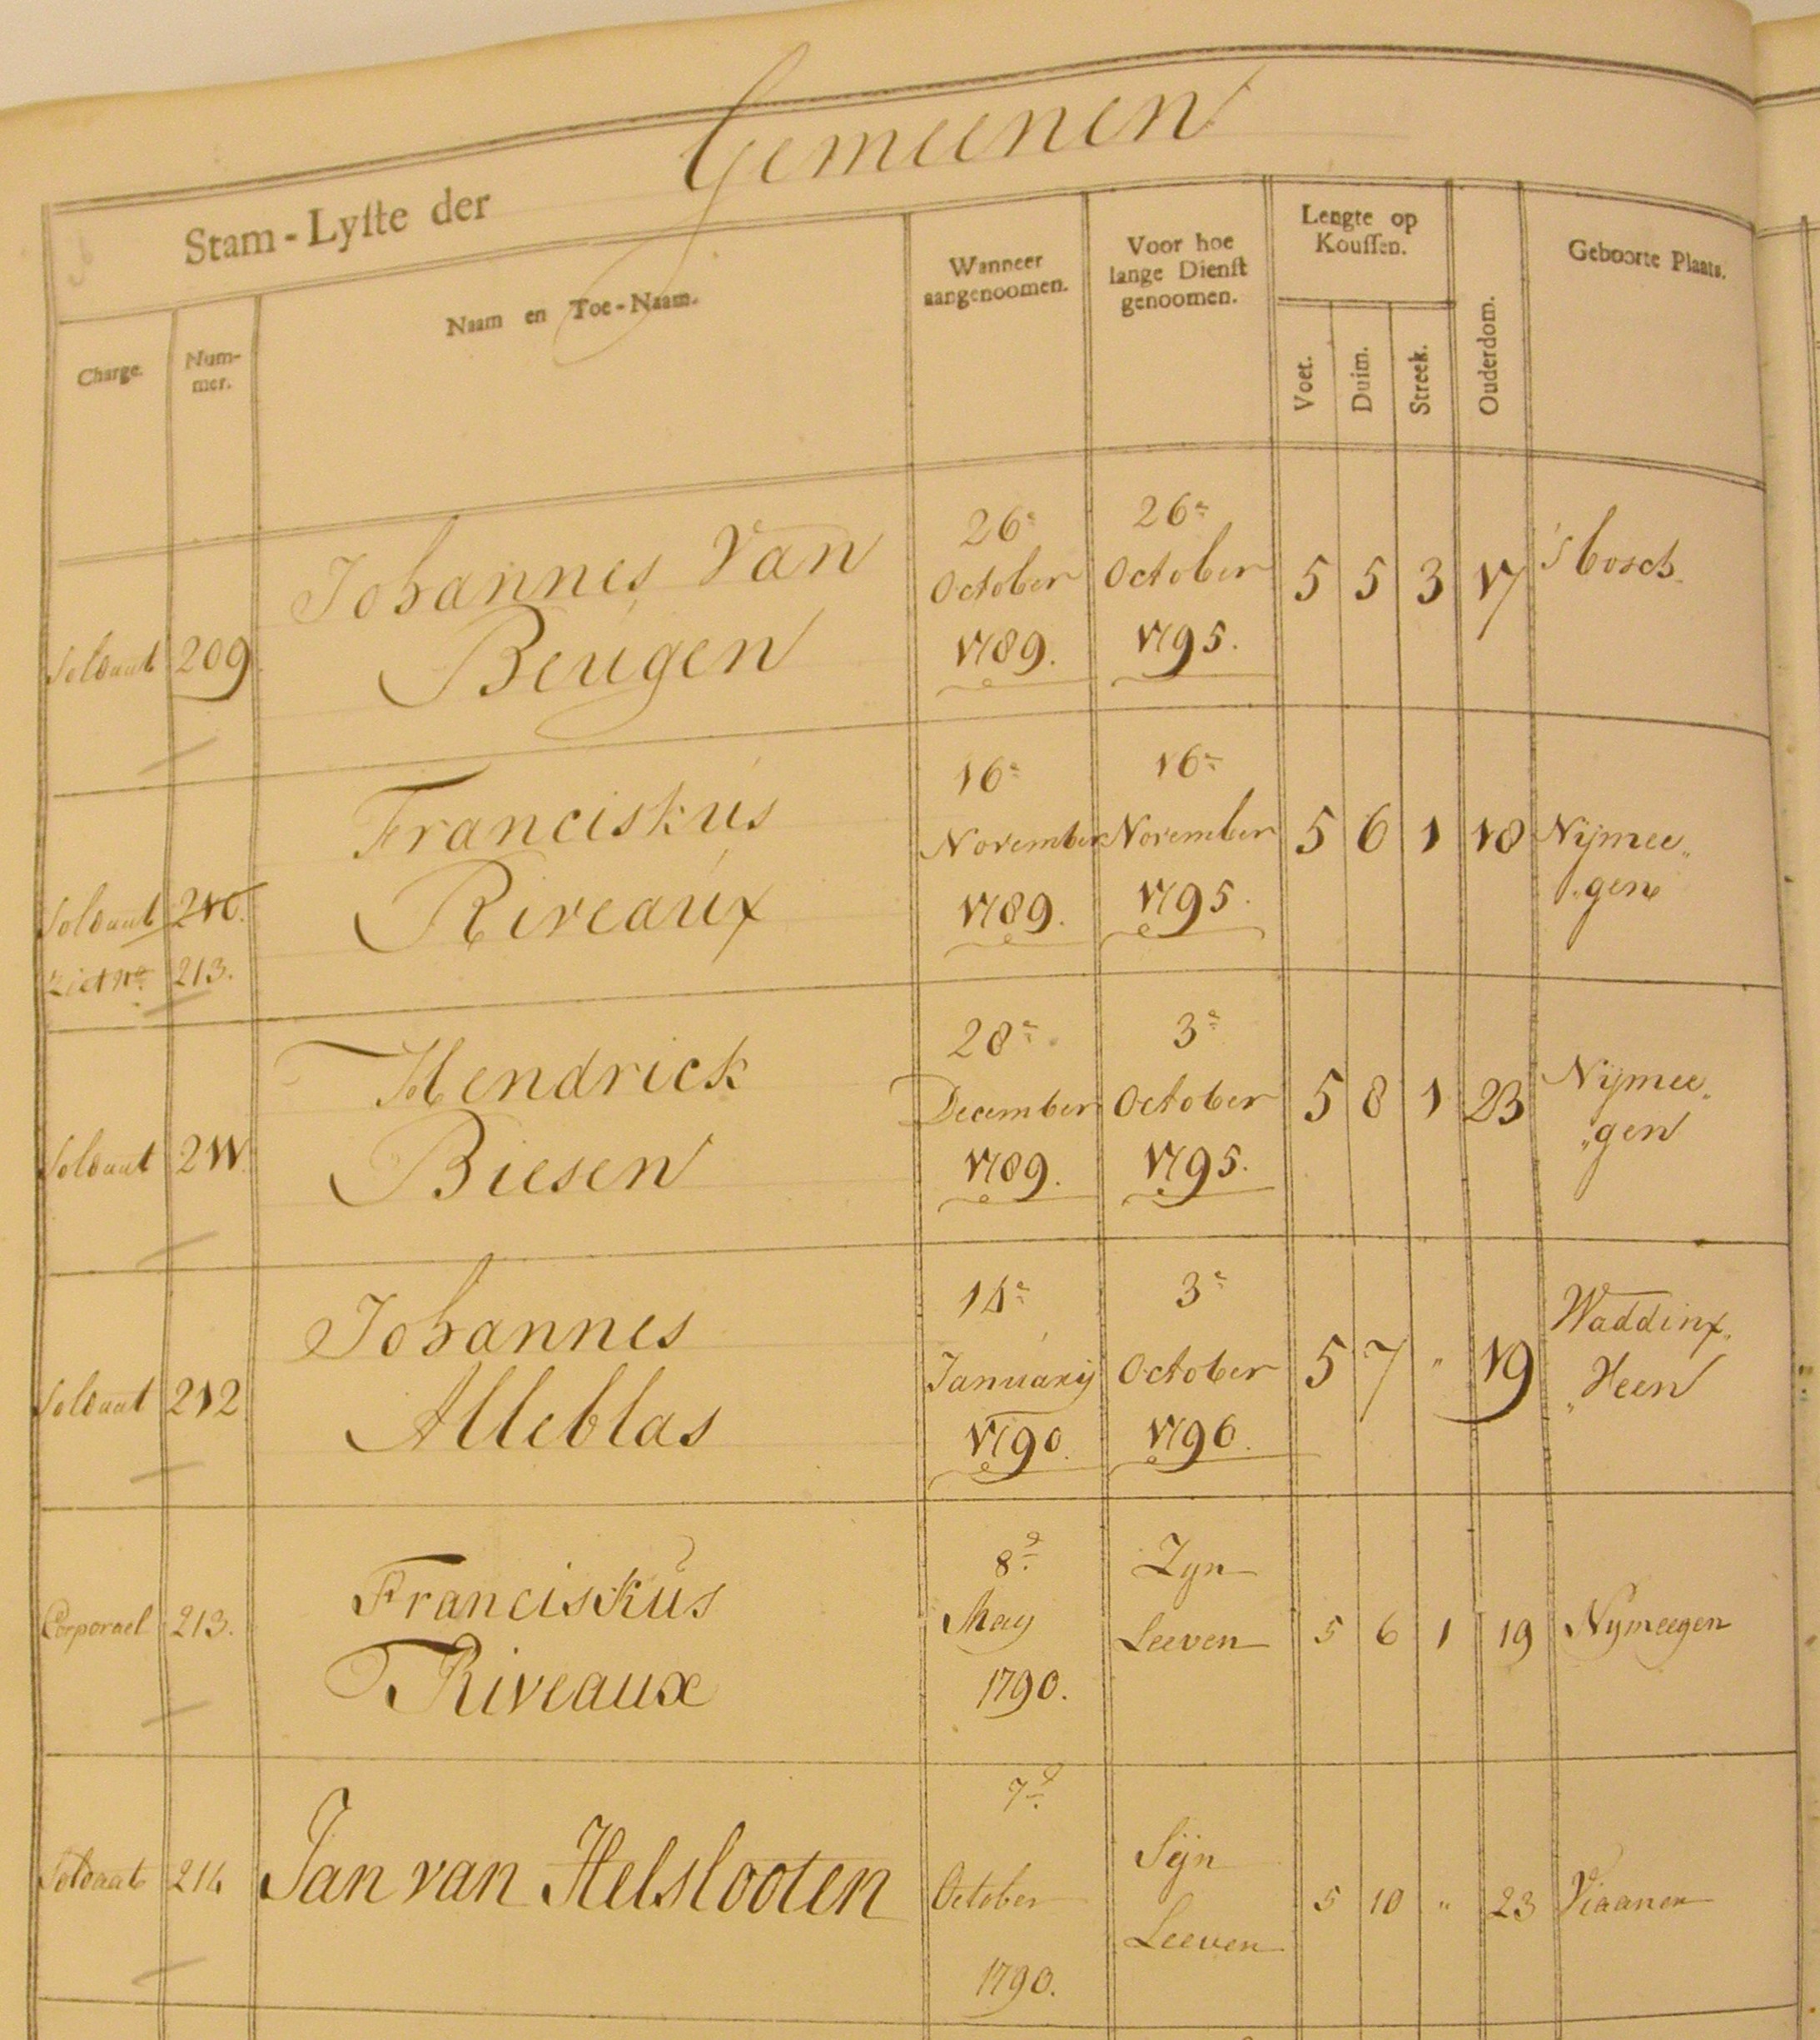 Gemeenen
Stam-Lyste der
Charge. Num-mer. Naam en Toe-Naam. Wanneer aangenoomen. Voor hoe lange Dienst genoomen. Lengte op Koussen. Voet. Duim. Streek. Ouderdom. Geboorte Plaats.
Soldaat 209. Johannes Van Beugen 26e October 1789. 26e October 1795. 5 5 3 17 'sbosch
Soldaat 210. Franciskus Riveaux 16e November 1789. 16e November 1795. 5 6 1 18 Nijmee„ „gen
Ziet No. 213.
Soldaat 211. Hendrick Biesen 28e December 1789. 3e October 1795. 5 8 1 23 Nijmee„ „gen
Soldaat 212 Johannes Alleblas 14e Januarij 1790. 3e October 1796. 5 7 " 19 Waddinx„ „Veen
Corporael 213. Franciskus Riveaux 8e May 1790. Zyn Leeven 5 6 1 19 Nymeegen
Soldaat 214 Jan van Helslooten 7e October 1790. Sijn Leeven 5 10 " 23 Viaanen